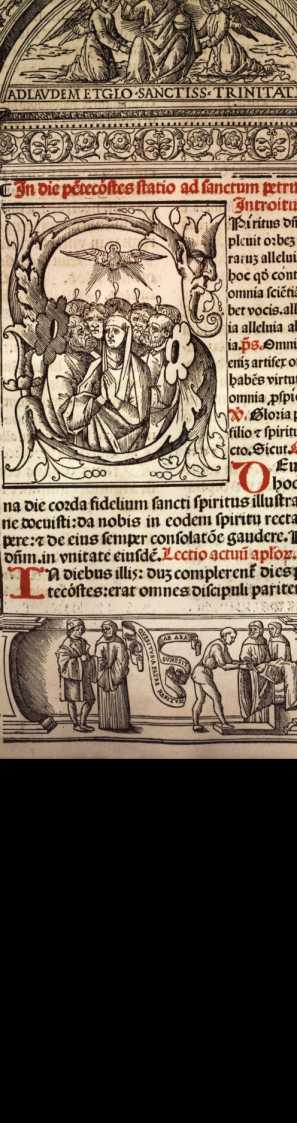 AD LAVDEM ET GLO· SANCTISS· TRINITATI
In die pētecostes statio ad sanctum petru
Introitu
Piritus dñ
pleuit orbez
raruz alleluia
hoc qđ cont
omnia sciētiā
bet vocis. all
ia alleluia al
ia. ps. Omni
eniz artifex o
habēs virtut
omnia ꝓspic
℣. Gloria p
filio ⁊ spiritu
cto. Sicut.
DEu
hoc
na die corda fidelium sancti spiritus illustra
ne docuisti: da nobis in eodem spiritu recta
pere: ⁊ de eius semper consolatōe gaudere.
dñm. in vnitate eiusdē. Lectio actuū aplōꝝ.
IN diebus illis: duz complerent̄ dies p
tecōstes: erat omnes discipuli pariter